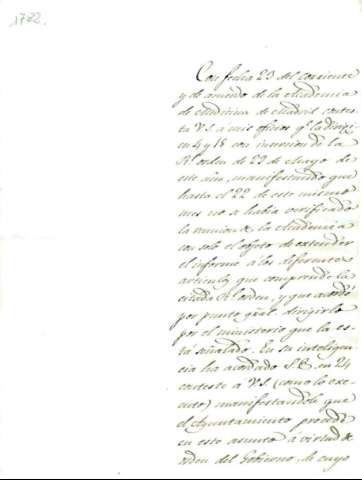 1722.
Con fecha 23 del corriente
y de acuerdo de la Academia
de Medicina de Madrid contes-
ta V.S. á mis oficios q.e la dirigí
en 4 y 18 con insercion de la
Rl orden de 22 de Mayo de
este año, manifestando que
hasta el 22 de este mismo
mes no se habia verificado
la reunion de la Academia
con solo el objeto de estender
el informe á los diferentes
articulos que comprende la
citada Rl orden, y que acordó
por punto gral dirigirlo
por el ministerio que la es-
tá señalado. En su inteligen-
cia ha acordado S.E. en 24
conteste á V.S. (como lo exe-
cuto) manifestandole que
el Ayuntamiento procede
en este asunto á virtud de
orden del Gobierno, de cuyo